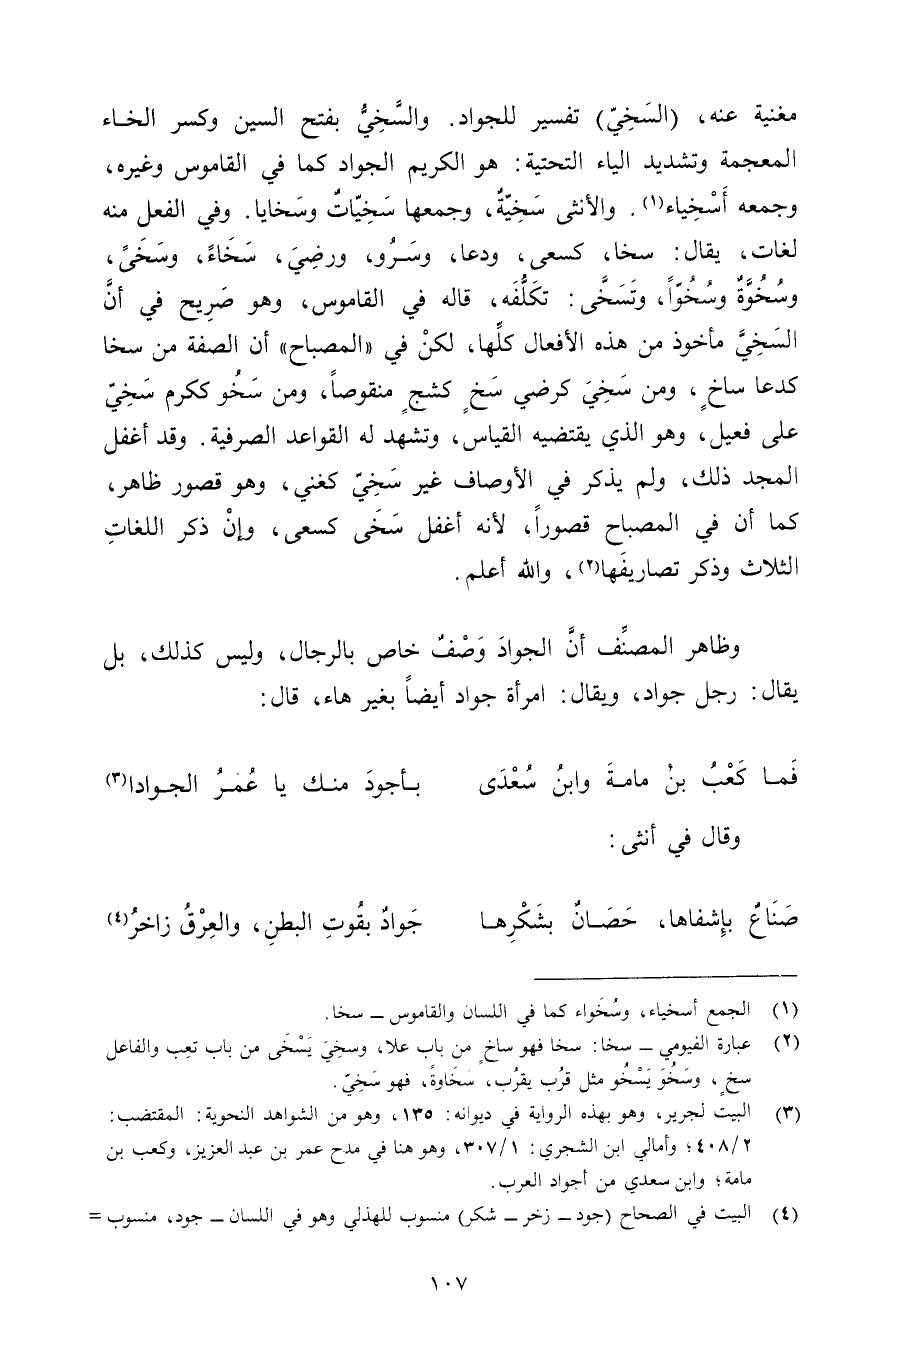 مغنية عنه، (السَخِيّ) تفسير للجواد. والسَّخِيُّ بفتح السين وكسر الخاء
المعجمة وتشديد الياء التحتية: هو الكريم الجواد كما في القاموس وغيره،
وجمعه أَسْخِياء(١). والأنثى سَخِيَّةٌ، وجمعها سَخِيّاتٌ وسَخايا. وفي الفعل منه
لغات، يقال: سخا، كسعى، ودعا، وسَرُو، ورضِيَ، سَخَاءً، وسَخىً،
وسُخُوَّةٌ وسُخُوّاً، وتَسَخَّى: تكَلَّفَه، قاله في القاموس، وهو صَرِيح في أنَّ
السَخِيَّ مأخوذ من هذه الأفعال كلِّها، لكنْ في «المصباح» أن الصفة من سخا
كدعا ساخٍ، ومن سَخِيَ كرضي سَخٍ كشجٍ منقوصاً، ومن سَخُو ككرم سَخِيّ
على فعيل، وهو الذي يقتضيه القياس، وتشهد له القواعد الصرفية. وقد أغفل
المجد ذلك، ولم يذكر في الأوصاف غير سَخِيّ كغني، وهو قصور ظاهر،
كما أن في المصباح قصوراً، لأنه أغفل سَخَى كسعى، وإنْ ذكر اللغاتِ
الثلاث وذكر تصاريفَها(٢)، والله أعلم.
وظاهر المصنِّف أنَّ الجوادَ وَصْفٌ خاص بالرجال، وليس كذلك، بل
يقال: رجل جواد، ويقال: امرأة جواد أيضاً بغير هاء، قال:
فَمـا كَعْبُ بنُ مامـةَ وابنُ سُعْدَى بـأجودَ منـك يا عُمَـرُ الجـوادا(٣)
وقال في أنثى:
صَنَاعٌ بإشفاها، حَصَـانٌ بشَكْرِهـا جَوادٌ بقُوتِ البطنِ، والعِرْقُ زاخرُ(٤)
(١) الجمع أسخياء، وسُخَواء كما في اللسان والقاموس ــ سخا.
(٢) عبارة الفيومي ــ سخا: سخا فهو ساخٍ من باب علا، وسخِيَ يَسْخَى من باب تعِب والفاعل
سخٍ، وسَخُوَ يَسْخُو مثل قرُب يقرُب، سَخَاوةً، فهو سَخِيّ.
(٣) البيت لجرير، وهو بهذه الرواية في ديوانه: ١٣٥، وهو من الشواهد النحوية: المقتضب:
٤٠٨/٢؛ وأمالي ابن الشجري: ٣٠٧/١، وهو هنا في مدح عمر بن عبد العزيز، وكعب بن
مامة؛ وابن سعدي من أجواد العرب.
(٤) البيت في الصحاح (جود ــ زخر ــ شكر) منسوب للهذلي وهو في اللسان ــ جود، منسوب =
١٠٧